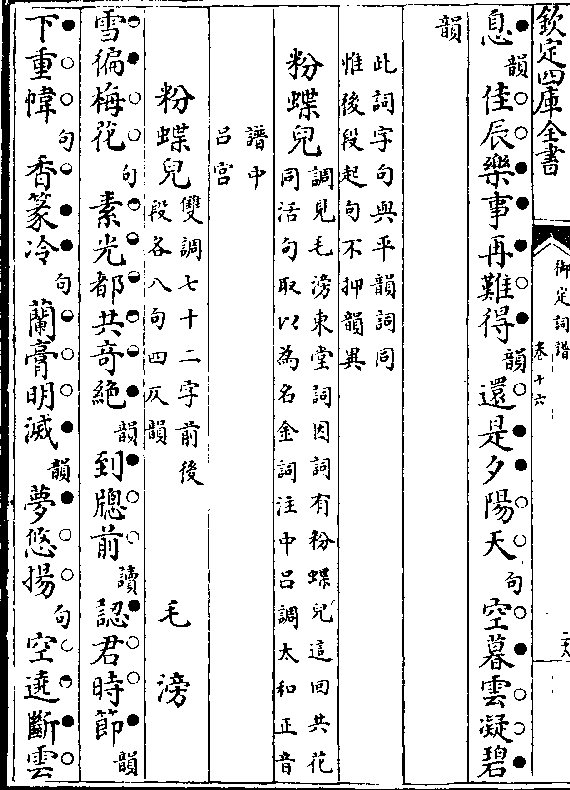 欽定四庫全書
御定詞譜
卷十六
息韻佳辰樂事再難得韻還是夕陽天句空暮雲凝碧
韻
此詞字句與平韻詞同
惟後段起句不押韻異
粉蝶兒
調見毛滂東堂詞因詞有粉蝶兒這回共花
同活句取以為名金詞注中呂調太和正音
譜中
呂宮
粉蝶兒
雙調七十二字前後
段各八句四仄韻
毛滂
雪徧梅花句素光都共奇絶韻到牕前讀認君時節韻
下重幃句香篆冷句蘭膏明滅韻夢悠揚句空遶斷雲